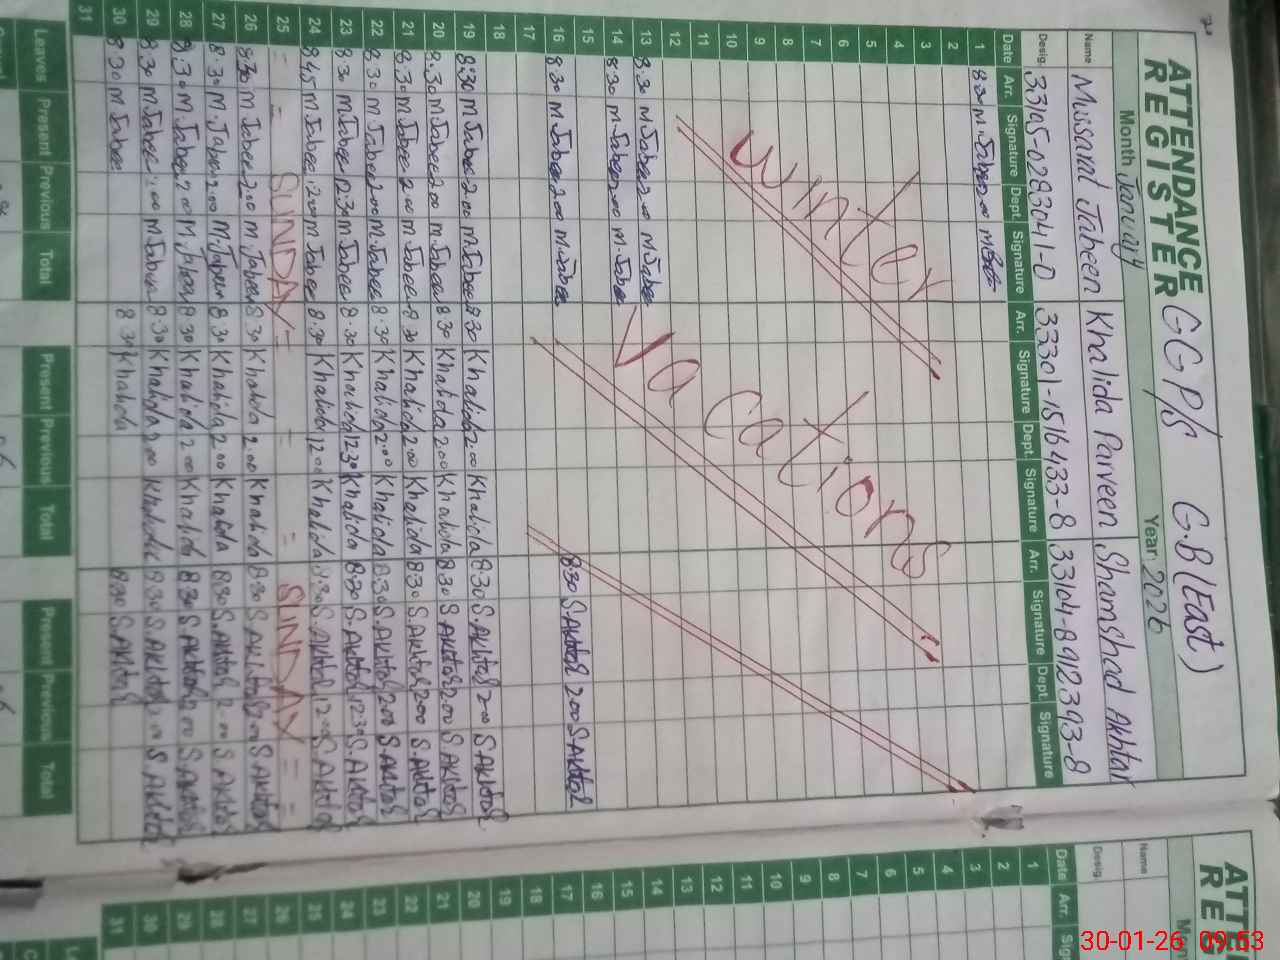 ATTENDANCE REGISTER GGP/S G.B(East)
Month January Year: 2026
Name Mussarat Jabeen Khalida Parveen Shamshad Akhtar
Desig. 33301-1516433-8 33104-8912393-8
Date Arr. Signature Dept. Signature Arr. Signature Dept. Signature Arr. Signature Dept. Signature
1
2
3
4
5
6
7
8
9
10
11
12
Winter Vacations
13 8:30 M Jabeen 2:00 M Jabee
14 8:30 M Jabeen 2:00 M Jabee
15 8:30 S.Akhtar 2:00 S Akhtar
16 8:30 M Jabeen 2:00 M. Jabee
17
18
19 8:30 M Jabee 2:00 M Jabee 8:30 Khalida 2:00 Khalida 8:30 S. Akhtar 2:00 S Akhtar
20 8:30 M Jabee 2:00 M. Jabee 8:30 Khalida 2:00 Khalida 8:30 S. Akhtar 2:00 S Akhtar
21 8:30 M Jabee 2:00 M Jabee 8:30 Khalida 2:00 Khalida 8:30 S. Akhtar 2:00 S Akhtar
22 8:30 M Jabee 2:00 M. Jabee 8:30 Khalida 2:00 Khalida 8:30 S. Akhtar 2:00 S Akhtar
23 8:30 M Jabee 12:30 M Jabee 8:30 Khalida 12:30 Khalida 8:30 S. Akhtar 12:30 S. Akhtar
24 8:45 M Jabee 12:00 M Jabee 8:30 Khalida 12:00 Khalida 8:30 S. Akhtar 12:00 S. Akhtar
25 - - SUNDAY - - = SUNDAY = =
26 8:30 M Jabee 2:00 M. Jabee 8:30 Khalida 2:00 Khalida 8:30 S Akhtar 2:00 S Akhtar
27 8:30 M. Jabeen 2:00 M. Jabeen 8:30 Khalida 2:00 Khalida 8:30 S. Akhtar 2:00 S Akhtar
28 8:30 M. Jabee 2:00 M. Jabeen 8:30 Khalida 2:00 Khalida 8:30 S Akhtar 2:00 S Akhtar
29 8:30 M Jabee M Jabeen 8:30 Khalida 2:00 Khalida 8:30 S Akhtar S Akhtar
30 8:30 M Jabee 8:30 Khalida 8:30 S. Akhtar
31
Leaves Present Previous Total Present Previous Total Present Previous Total
ATTE
REG
Name
Desig.
Date Arr.
1
2
3
4
5
6
7
8
9
10
11
12
13
14
15
16
17
18
19
20
21
22
23
24
25
26
27
28
29
30
31
30-01-26 09:53